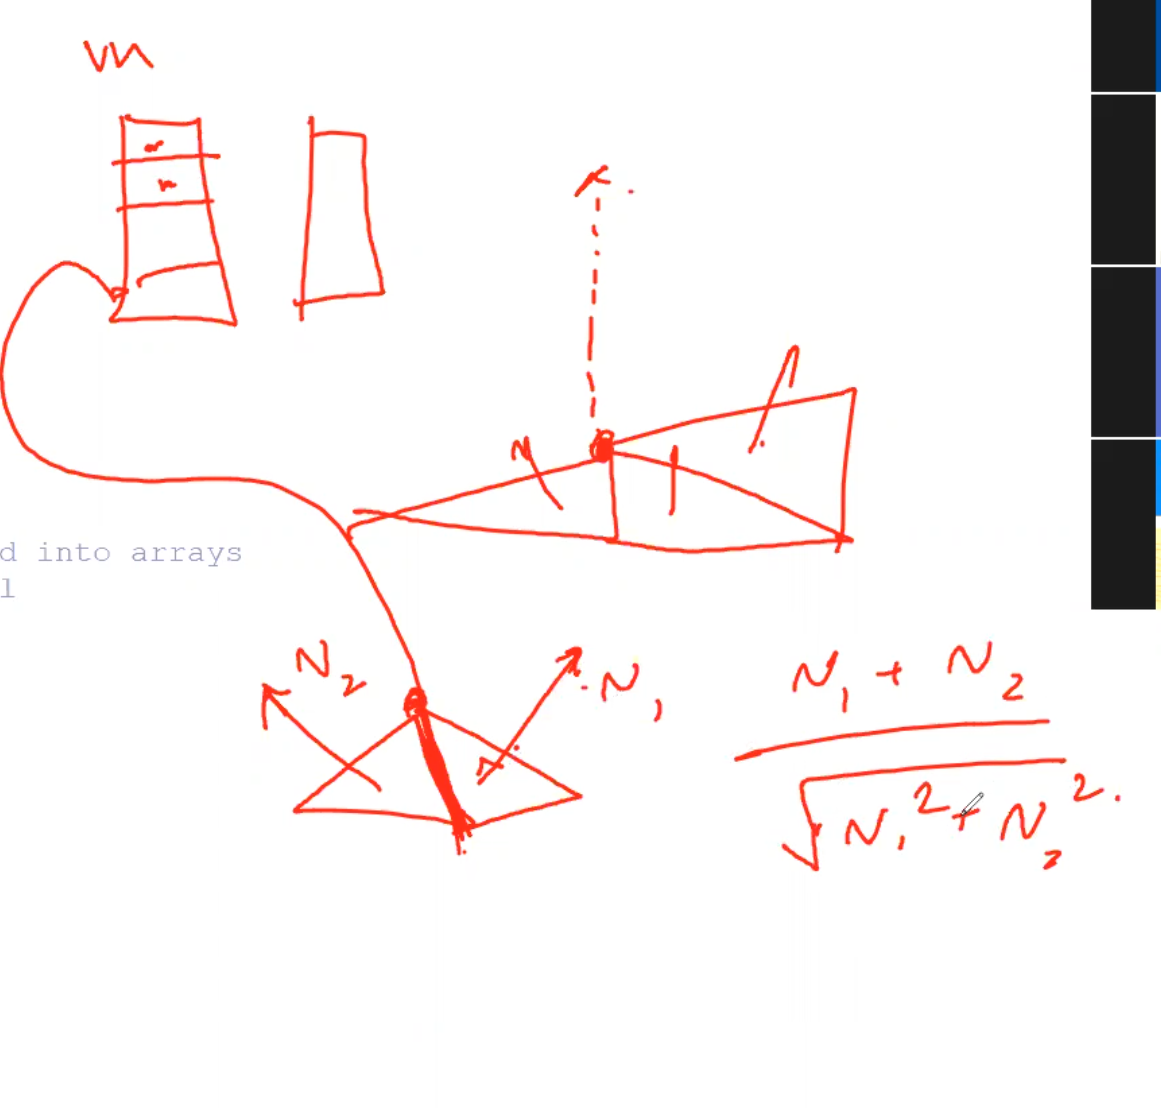 d into arrays
l
N₂
N₁
N₁ + N₂
√N₁² + N₂²